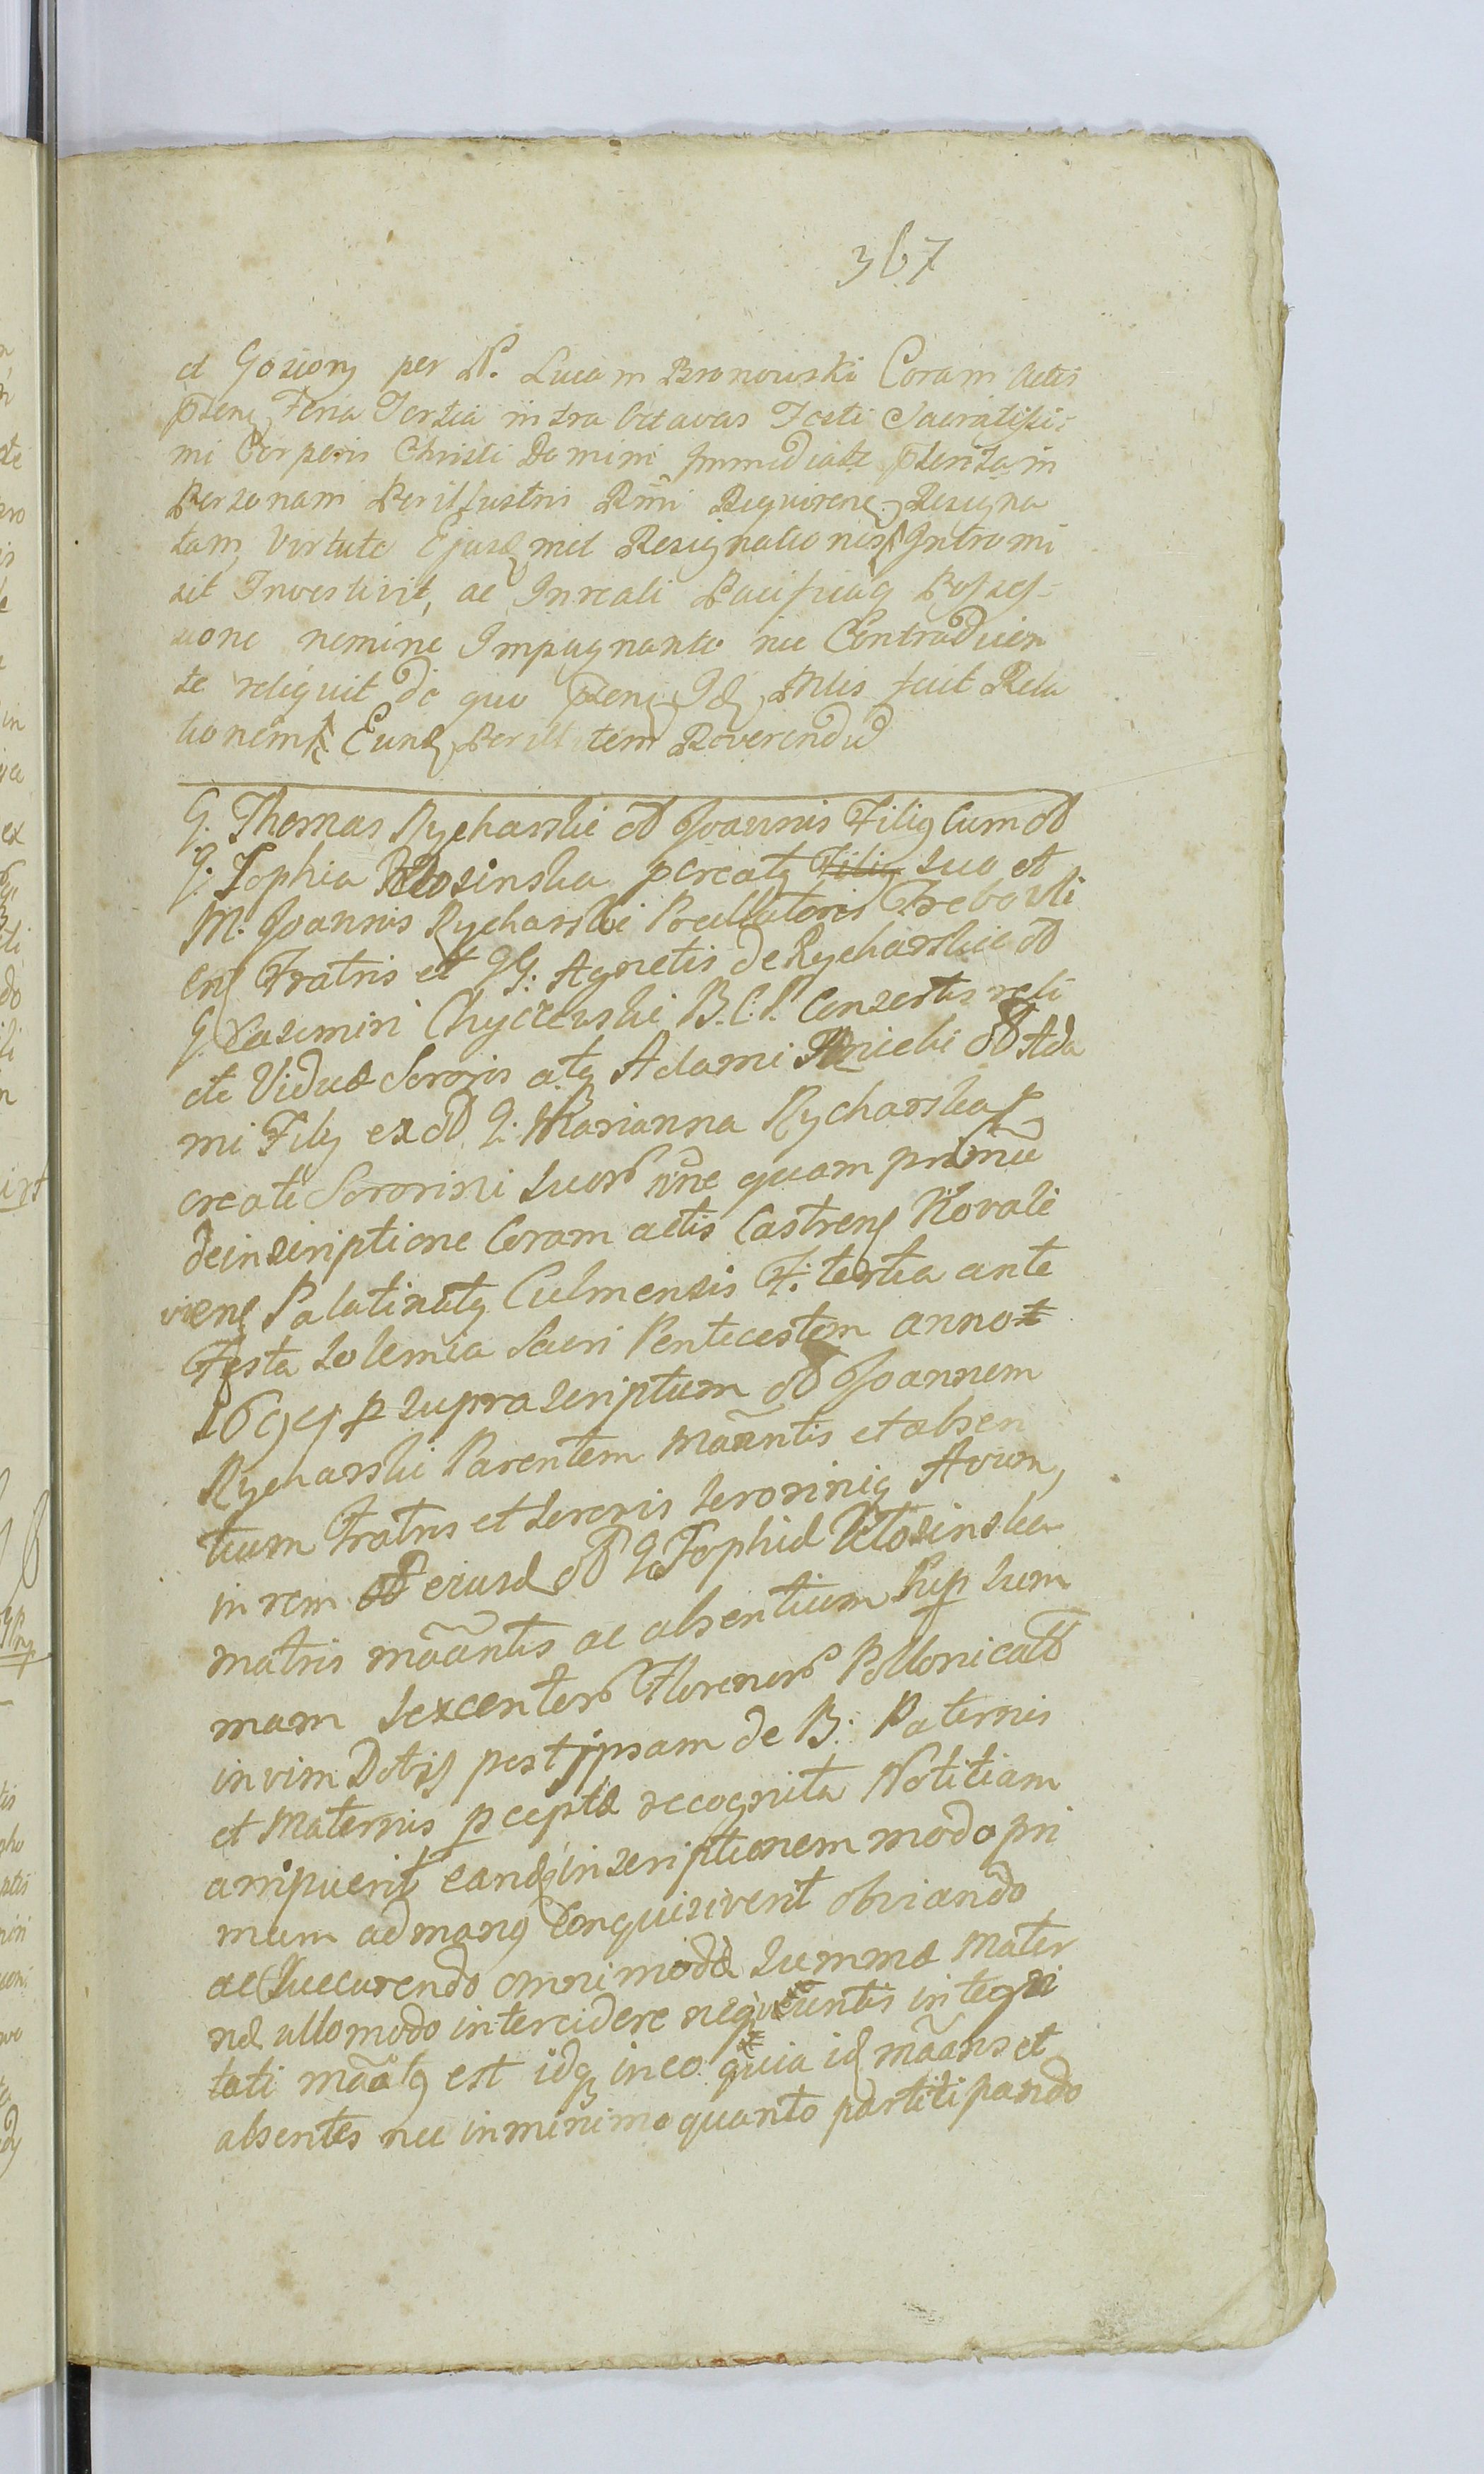 367
et Gosiony per N. Lucam Bronowski Coram Actis
pnten Feria Tertia intra Octavas Festi Sacratissi-
mi Corporis Christi Domini Immediate pterita in
Personam Perillustris Rmi Requirens Resigna
tam, Virtute Ejusd met Resignationis Intromi
sit Investivit, ac In reali Pacificaq Posses-
sione nemine Impugnante nec Contradicen
te reliquit de quo pnten Id Mlis fecit Rela
tionem Eund Perillustem Reverendu
G. Thomas Rycharski od Joannis Filig cum od
G. Sophia Klosinska pcreatg Filig suo et
M. Joannis Rycharski Praellatoris Trebovli
ens Fratris et G. Agnetis de Rycharskie od
G. Casimiri Chyczewski B.C.P. Consortis reli
cte Viduæ Sororis atq Adami Knichi od Ada
mi Filij ex od G. Marianna Rycharska p
create Sororini suor sine quam primu
de inscriptione Coram actis Castrens Kovale
viens Palatinatg Culmensis F. tertia ante
Festa Solemia Sacri Pentecostem anno
1694 p suprascriptum od Joannem
Rycharski Parentem Maantis et absen
tium Fratris et Sororis Sororinig Avum,
in rem od ejusd od G. Sophiæ Klosinska
matris maantis ac absentium sup sum
mam Sexcentor Florenor Pollonicalo
in vim Dotis post ipsam de B. Paternis
et Maternis pceptæ recognita Notitiam
arripuerit eand inscriptionem modo pri
mum ad mang conquisiverit obviando
ac succurendo omnimodæ Summæ Mater
næ ullo modo intercidere nequeuntis integri
tati maatg est idq in eo quia id maans et
absentes nec in minimo quanto partitipando